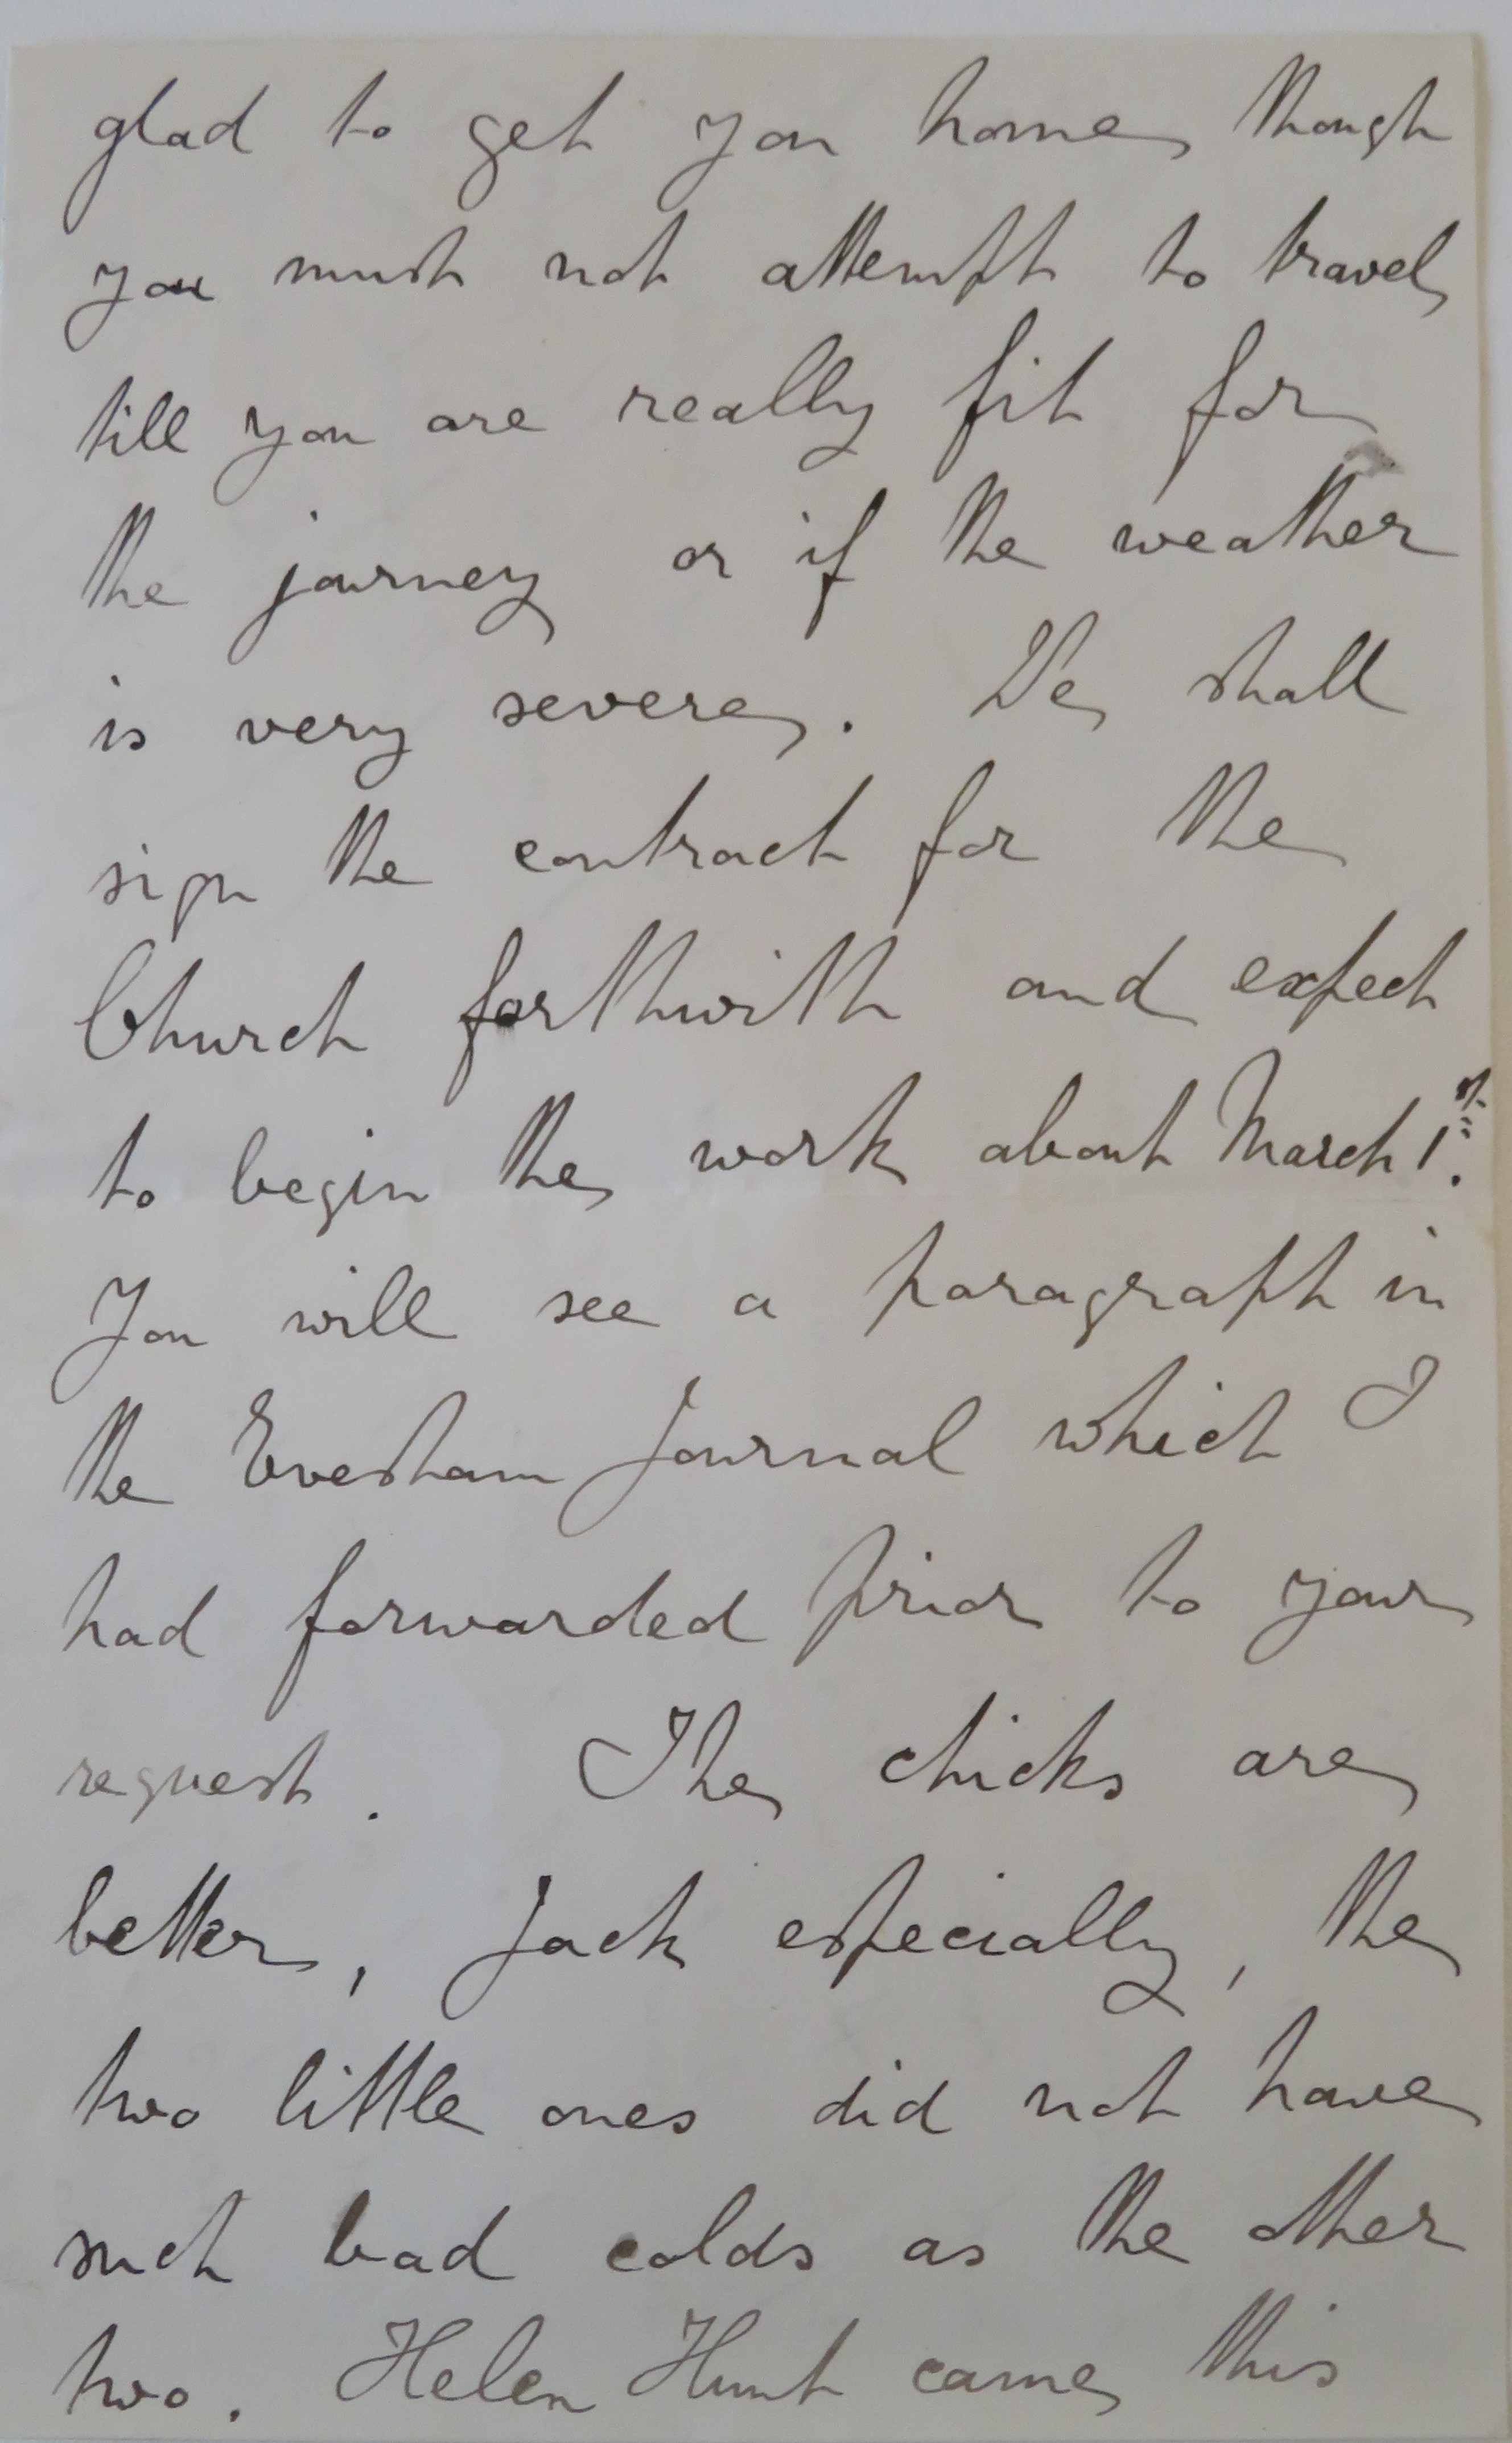 glad to get you home, though
you must not attempt to travel
till you are really fit for
the journey or if the weather
is very severe. We shall
sign the contract for the
Church forthwith and expect
to begin the work about March 1st.
You will see a paragraph in
the Evesham Journal which I
had forwarded prior to your
request. The chicks are
better, Jack especially, the
two little ones did not have
such bad colds as the other
two. Helen Hunt came this